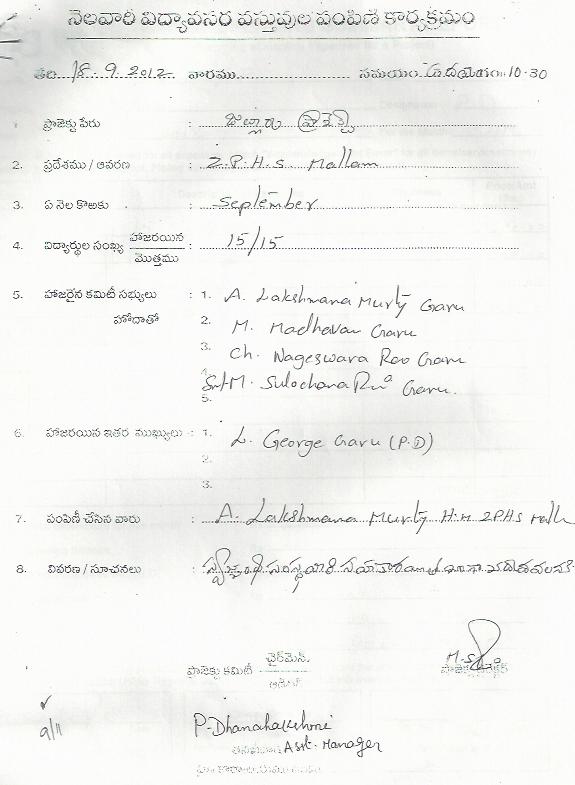 నెలవారీ విద్యావసర వస్తువుల పంపిణి కార్యక్రమం
తేది. 18.9.2012 వారము సమయం ఉదయం 10-30
1. ప్రాజెక్టు పేరు :
2. ప్రదేశము / ఆవరణ : Z.P.H.S Mallam
3. ఏ నెల కొఱకు : September
4. విద్యార్థుల సంఖ్య హాజరయిన / మొత్తము : 15/15
5. హాజరైన కమిటీ సభ్యులు : 1. A. Lakshmana Murty Garu
హోదాతో 2. M. Madhavan Garu
3. Ch. Nageswara Rao Garu
4. Smt M. Sulochana Garu.
5.
6. హాజరయిన ఇతర ముఖ్యులు : 1. L. George Garu (P.D)
2.
3.
7. పంపిణీ చేసిన వారు : A. Lakshmana Murty H.M ZPHS Mallam
8. వివరణ / సూచనలు :
ప్రాజెక్టు కమిటీ ఛైర్మెన్
P. Dhanalakshmi
Asst. Manager